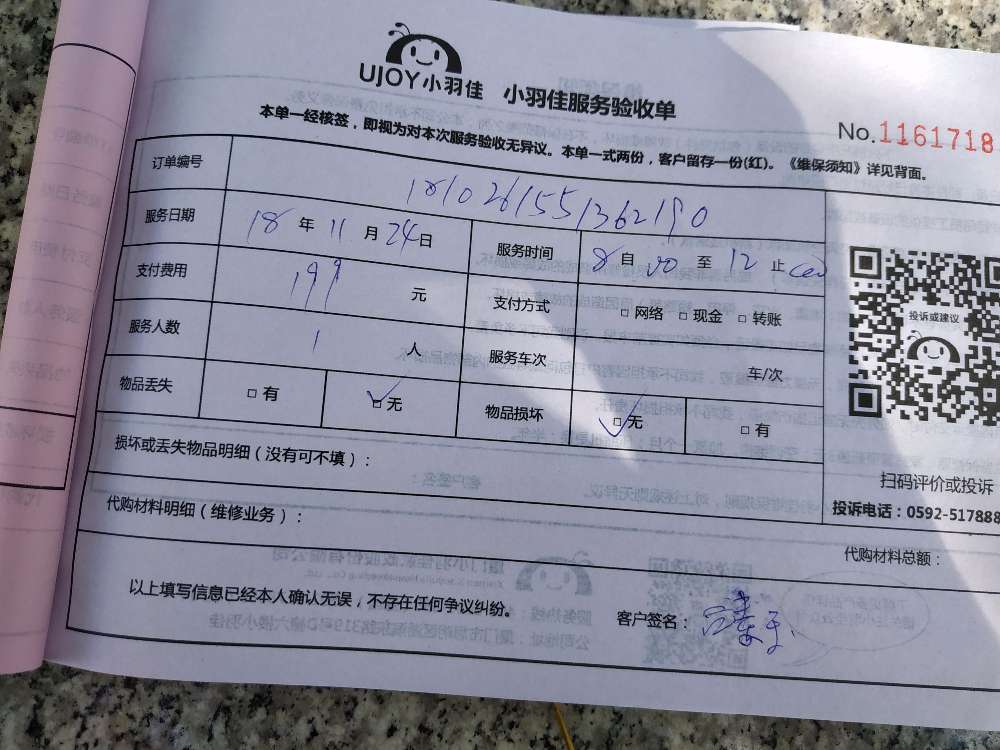 UJOY小羽佳 小羽佳服务验收单
No.1161718
本单一经核签，即视为对本次服务验收无异议。本单一式两份，客户留存一份(红)。《维保须知》详见背面。
订单编号 1810261551362190
服务日期 18年11月24日 服务时间 8自00至12止00
支付费用 199元 支付方式 □网络 □现金 □转账
服务人数 1人 服务车次 车/次
物品丢失 □有 □无 物品损坏 □无 □有
投诉或建议
损坏或丢失物品明细（没有可不填）：
扫码评价或投诉
投诉电话：0592-517888
代购材料明细（维修业务）：
代购材料总额：
以上填写信息已经本人确认无误，不存在任何争议纠纷。 客户签名：